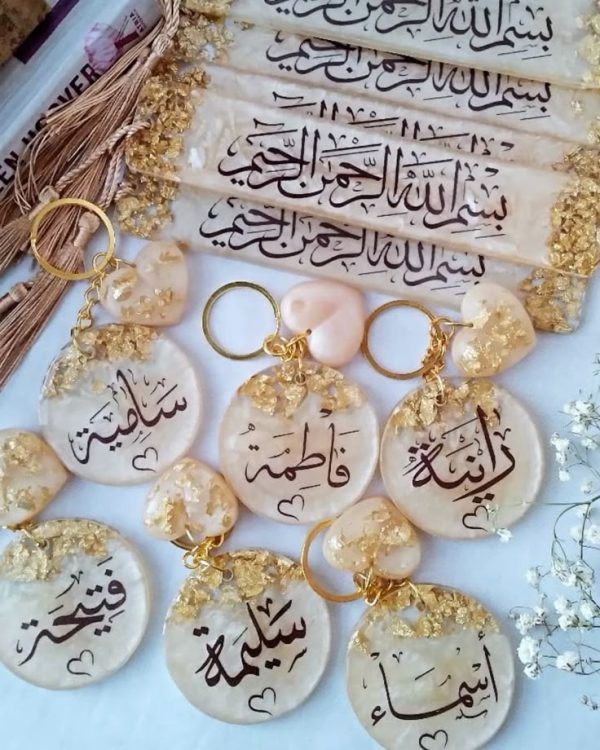 بسم الله الرحمن الرحيم
بسم الله الرحمن الرحيم
بسم الله الرحمن الرحيم
بسم الله الرحمن الرحيم
سامية
فاطمة
رانية
فتيحة
سليمة
أسماء